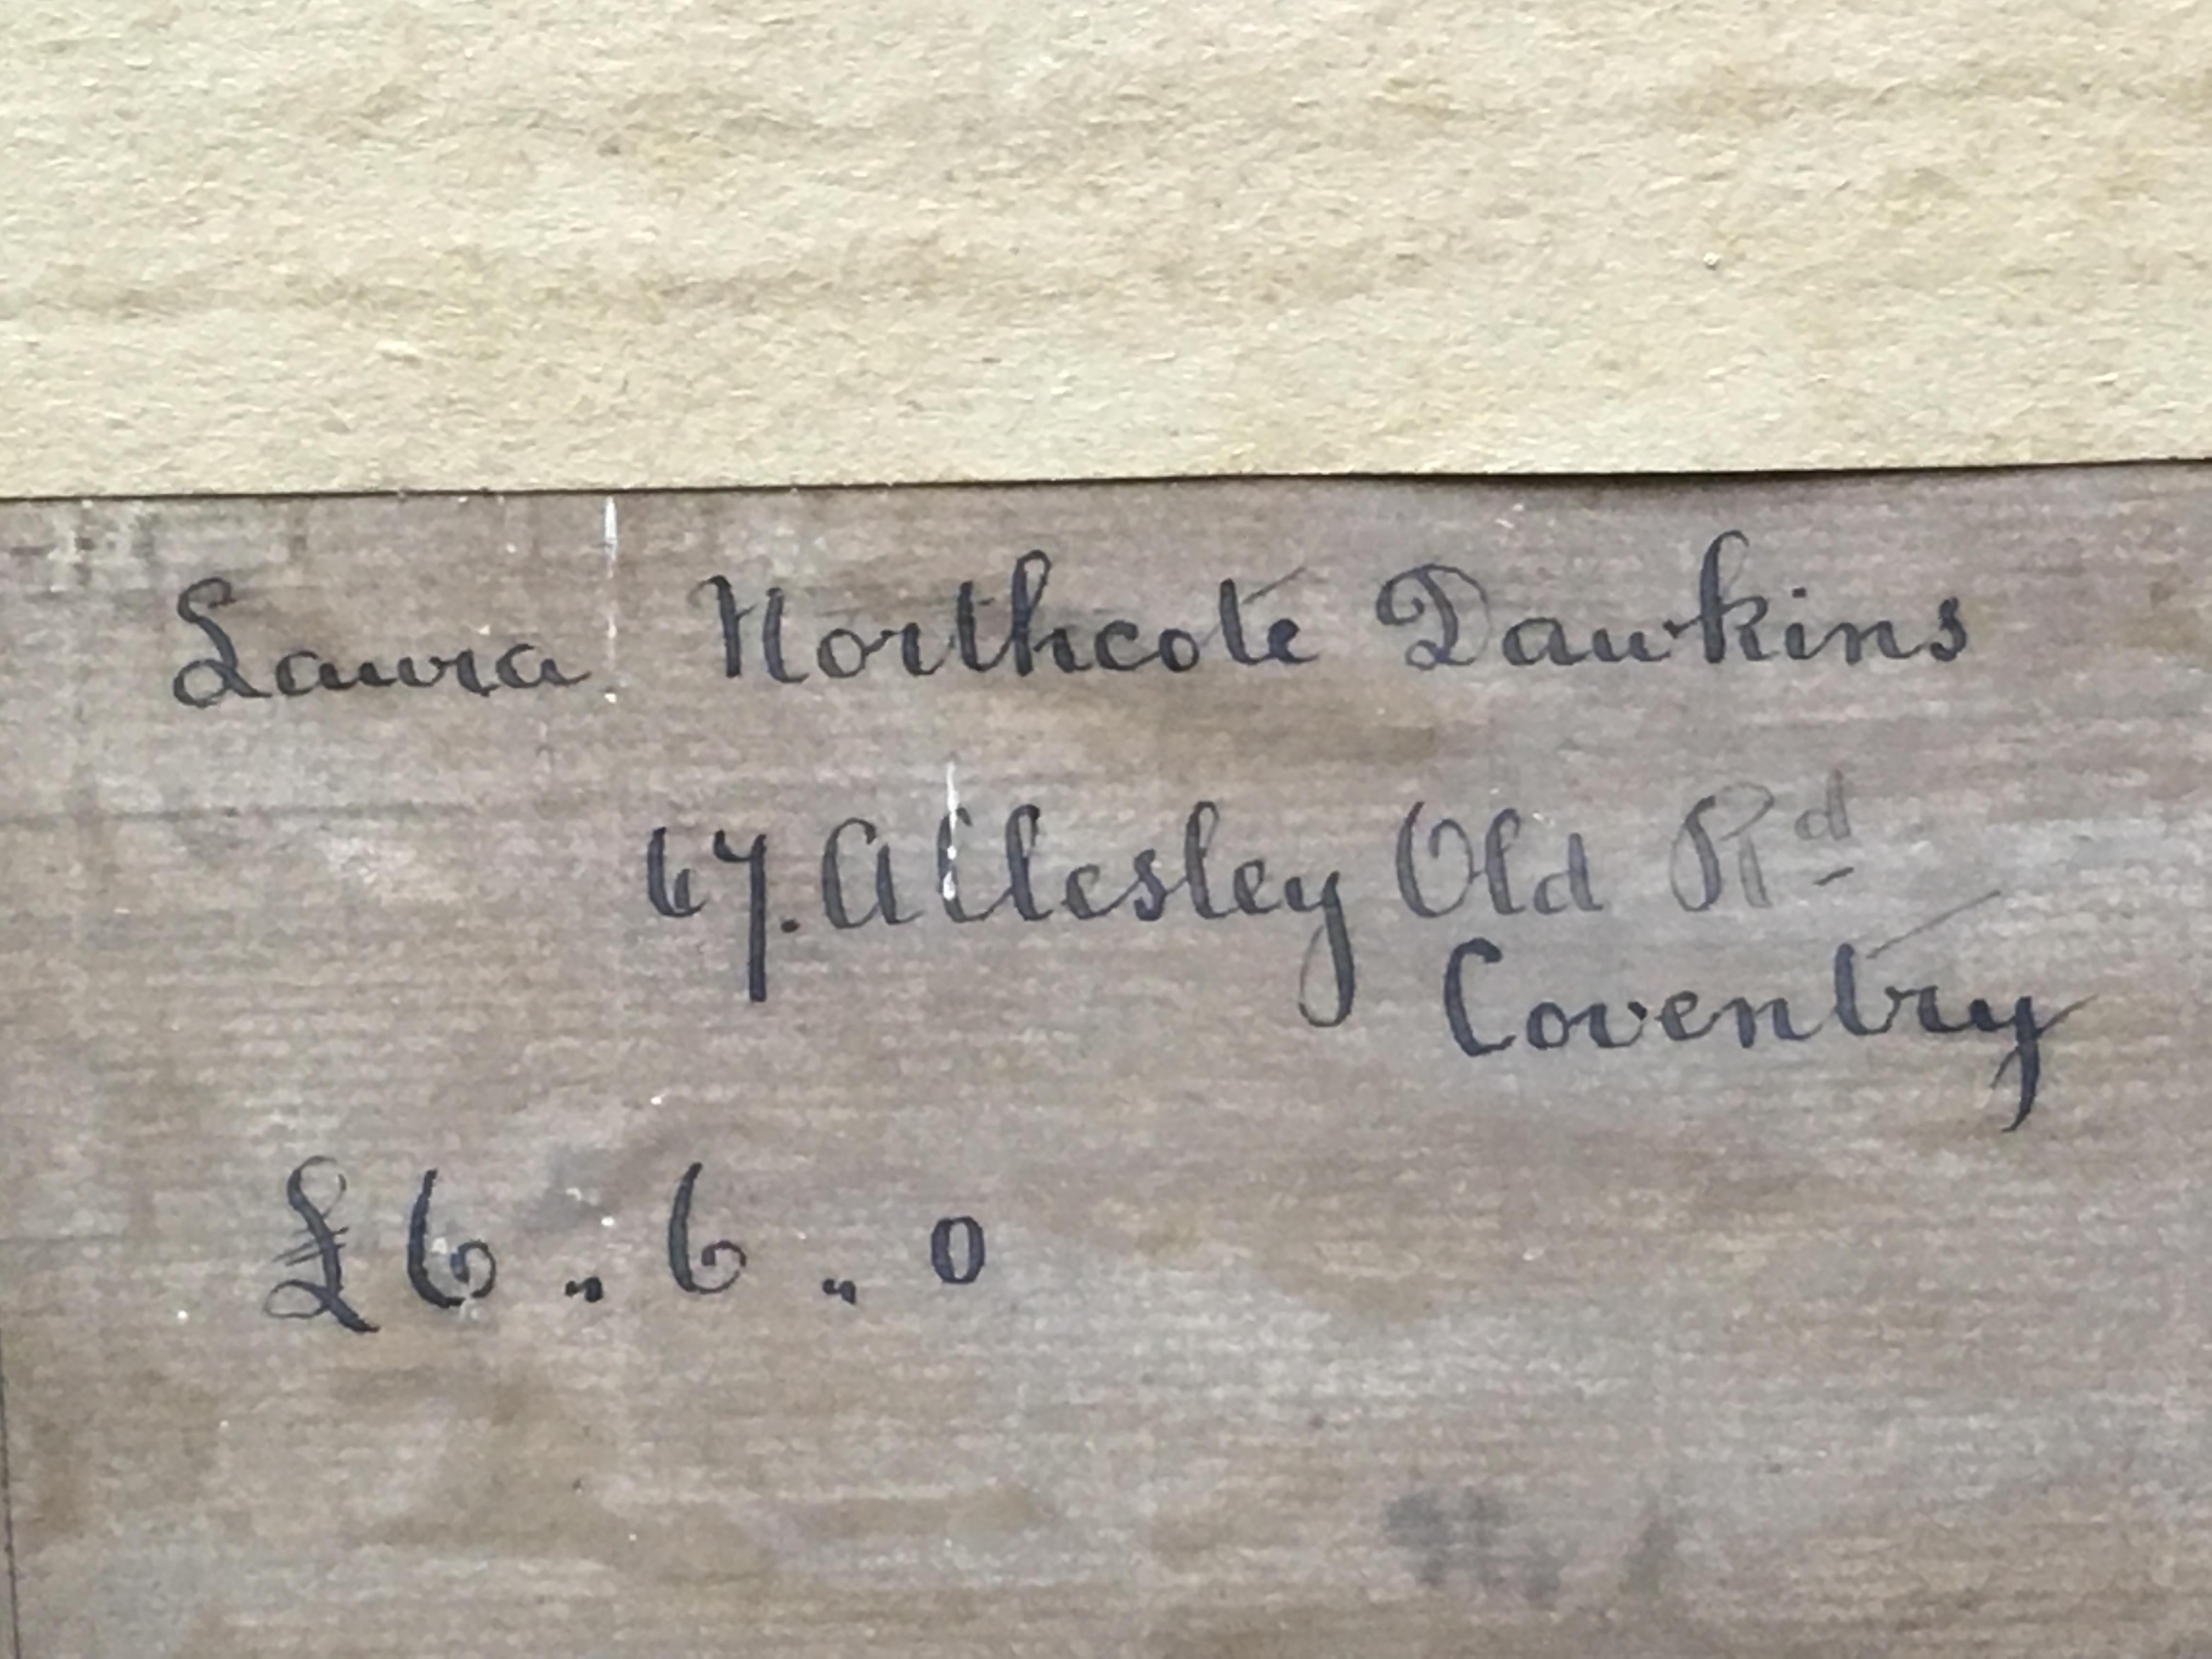 Laura Northcote Dawkins
67. Allesley Old Rd
Coventry
£6 " 6 " 0